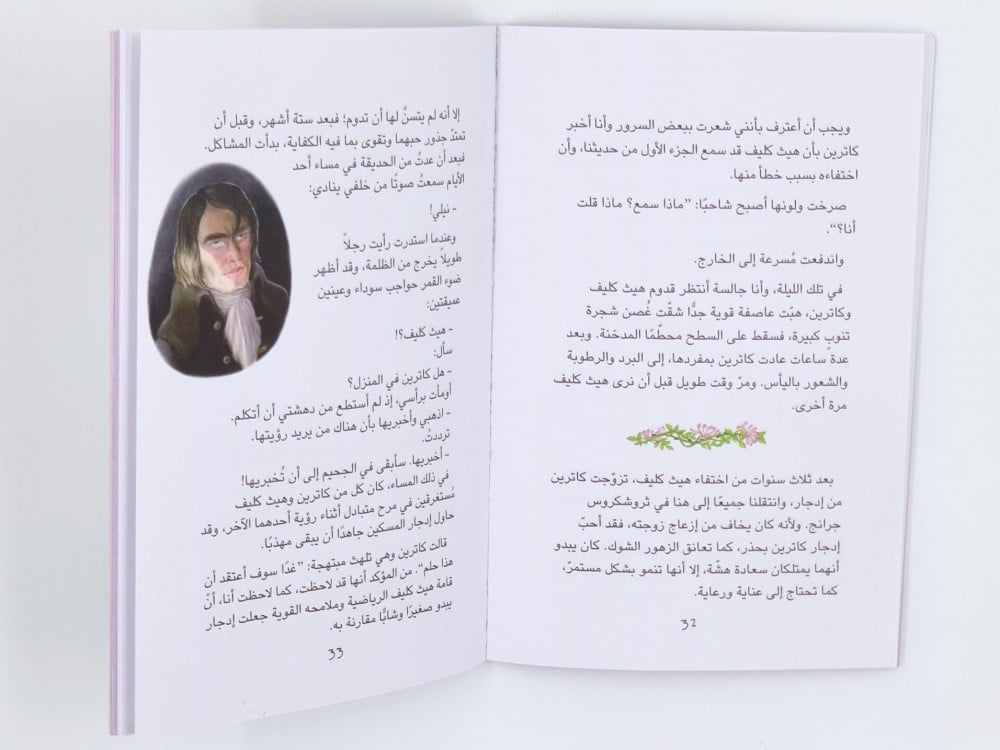 ويجب أن أعترف بأنني شعرت ببعض السرور وأنا أخبر
كاترين بأن هيث كليف قد سمع الجزء الأول من حديثنا، وأن
اختفاءه بسبب خطأ منها.
صرخت ولونها أصبح شاحبًا: ”ماذا سمع؟ ماذا قلت
أنا؟“.
واندفعت مُسرعة إلى الخارج.
في تلك الليلة، وأنا جالسة أنتظر قدوم هيث كليف
وكاترين، هبّت عاصفة قوية جدًّا شقّت غُصن شجرة
تنوبٍ كبيرة، فسقط على السطح محطّمًا المدخنة. وبعد
عدة ساعات عادت كاترين بمفردها، إلى البرد والرطوبة
والشعور باليأس. ومرّ وقت طويل قبل أن نرى هيث كليف
مرة أخرى.
بعد ثلاث سنوات من اختفاء هيث كليف، تزوّجت كاترين
من إدجار، وانتقلنا جميعًا إلى هنا في ثروشكروس
جرانج. ولأنه كان يخاف من إزعاج زوجته، فقد أحبّ
إدجار كاترين بحذر، كما تعانق الزهور الشوك. كان يبدو
أنهما يمتلكان سعادة هشّة، إلا أنها تنمو بشكل مستمرّ،
كما تحتاج إلى عناية ورعاية.
32
إلا أنه لم يتسنَّ لها أن تدوم؛ فبعد ستة أشهر، وقبل أن
تمتدّ جذور حبهما وتقوى بما فيه الكفاية، بدأت المشاكل.
فبعد أن عدتُ من الحديقة في مساء أحد
الأيام سمعتُ صوتًا من خلفي ينادي:
- نيلي!
وعندما استدرت رأيت رجلاً
طويلاً يخرج من الظلمة، وقد أظهر
ضوء القمر حواجب سوداء وعينين
عميقتين:
- هيث كليف؟!
سأل:
- هل كاترين في المنزل؟
أومأت برأسي، إذ لم أستطع من دهشتي أن أتكلم.
- اذهبي وأخبريها بأن هناك من يريد رؤيتها.
ترددتُ.
- أخبريها. سأبقى في الجحيم إلى أن تُخبريها!
في ذلك المساء، كان كل من كاترين وهيث كليف
مُستغرقين في مرح متبادل أثناء رؤية أحدهما الآخر، وقد
حاول إدجار المسكين جاهدًا أن يبقى مهذبًا.
قالت كاترين وهي تلهث مبتهجة: ”غدًا سوف أعتقد أن
هذا حلم“. من المؤكد أنها قد لاحظت، كما لاحظت أنا، أنّ
قامة هيث كليف الرياضية وملامحه القوية جعلت إدجار
يبدو صغيرًا وشابًّا مقارنة به.
33